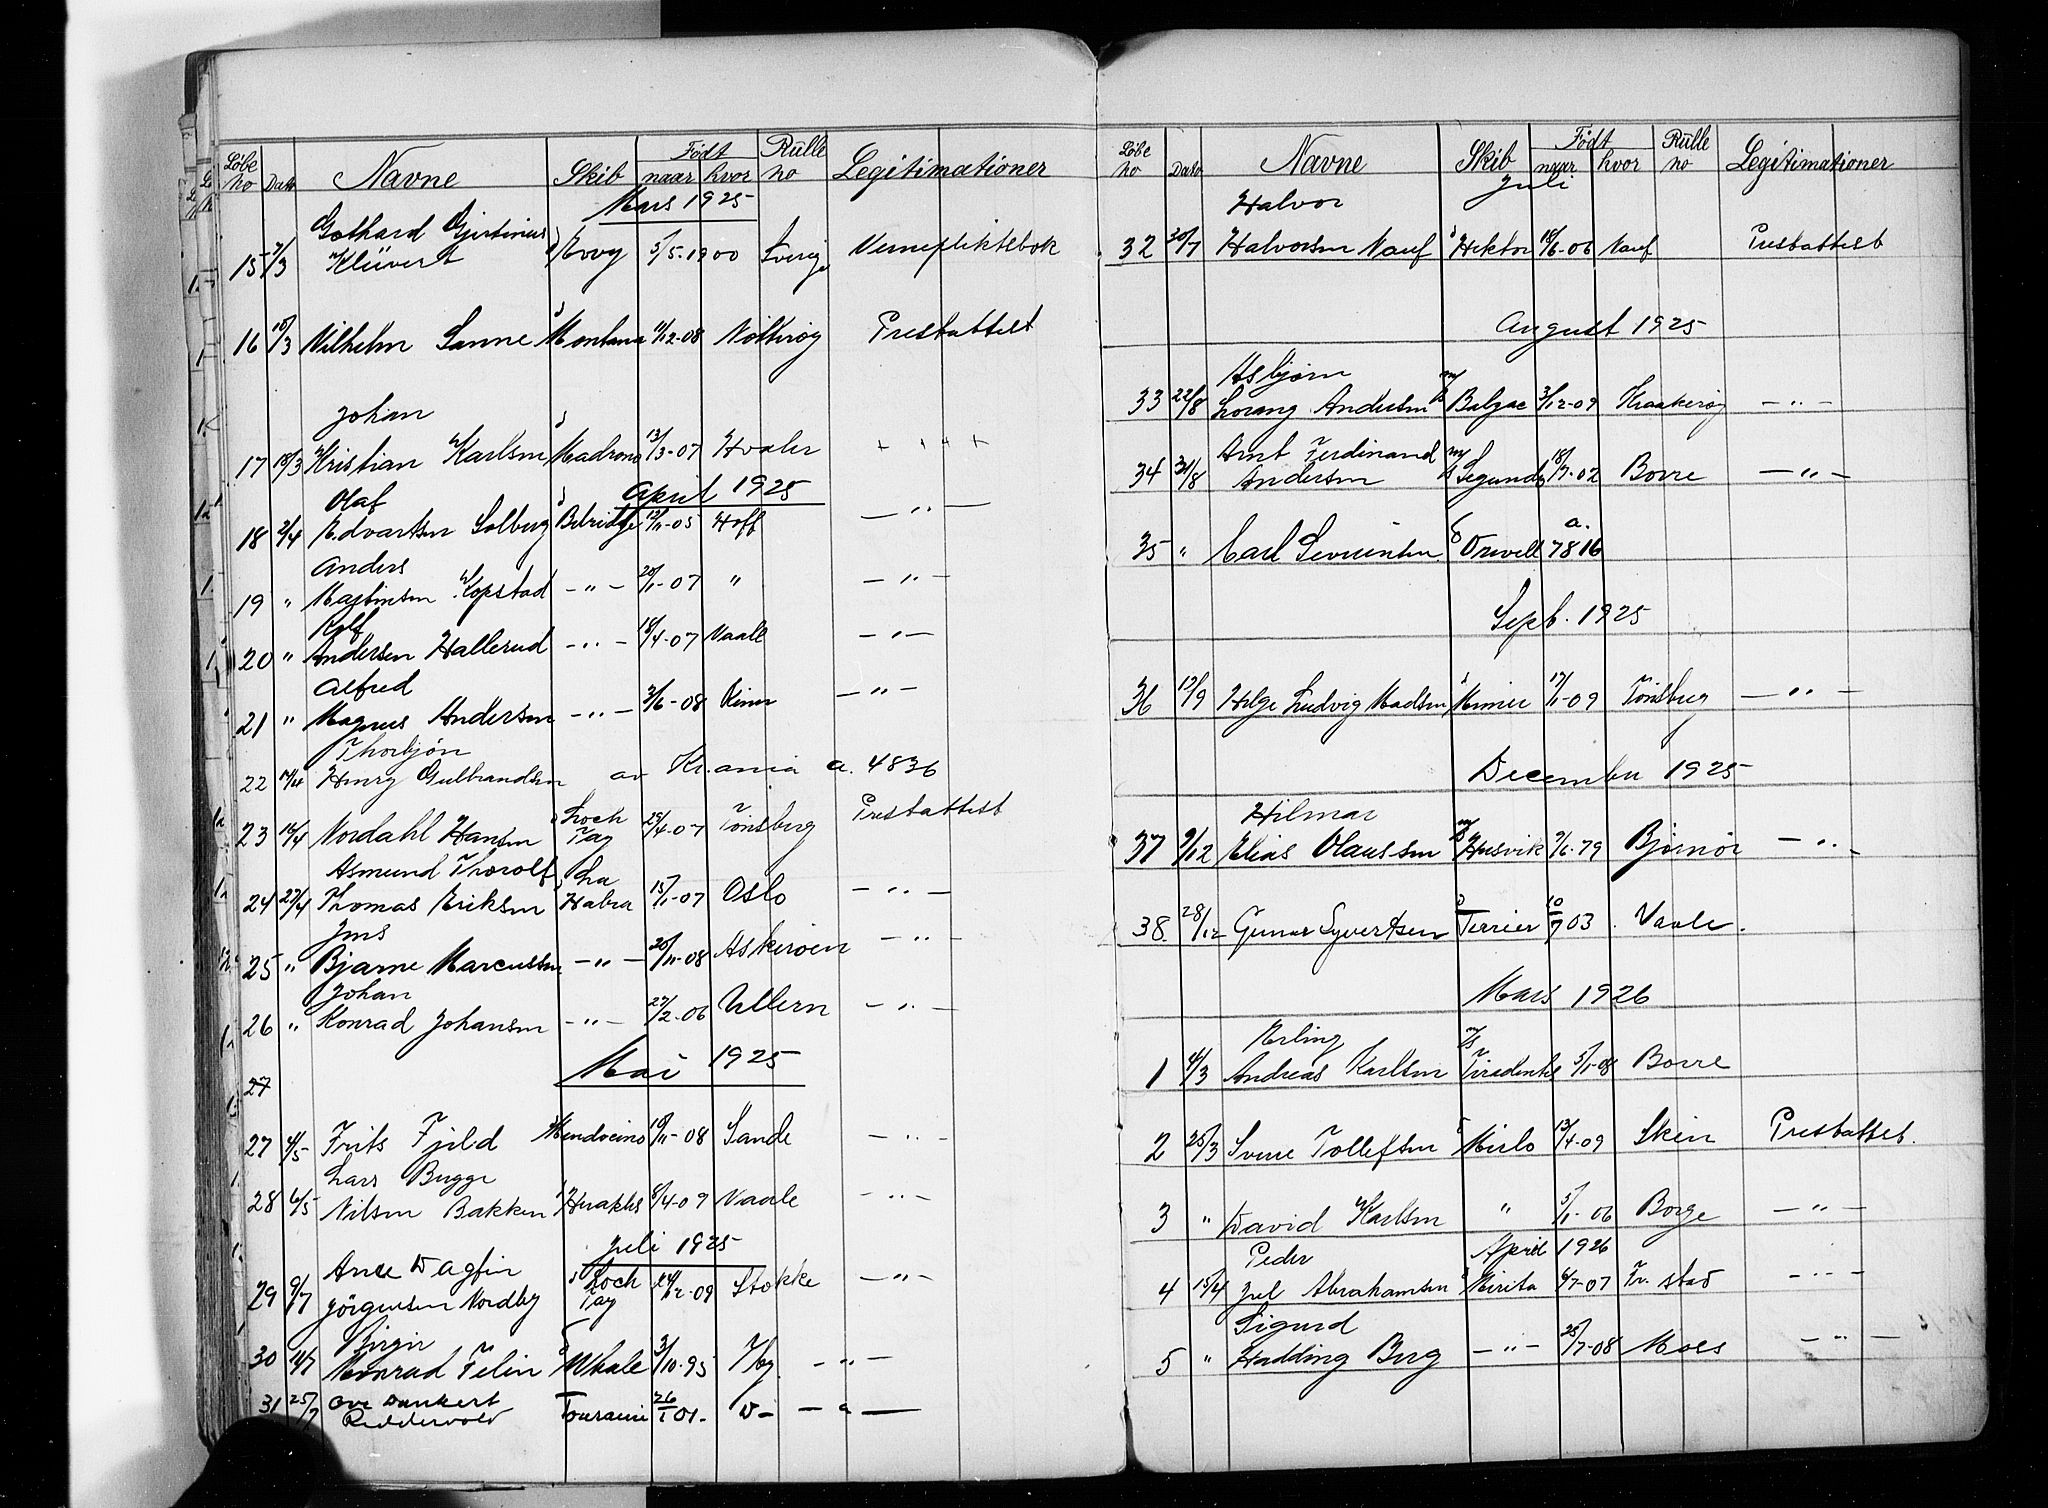 Løbe no Dato Navne Skib Født naar hvor Rulle no Legitimationer
Mars 1925
Gothard Gjertinius
15 7/3 Klüvert Rovy 5/5-1900 Sverige Vernepliktsbok
16 10/3 Vilhelm Sanne s Montana 11/12-08 Nøtterøy Prestattest
Johan
17 18/3 Kristian Karlsen s Madrono 13/3-07 Hvaler + + + +
April 1925
Olaf
18 2/4 Edvartsen Solberg s Belridge 12/11-05 Hoff — " —
Anders
19 " Martinsen Kopstad - " - 20/1-07 " — " —
Rolf
20 " Andersen Hallerud - " - 18/4-07 Vaale — " —
Alfred
21 " Magnus Andersen - " - 3/6-08 — " —
Thorbjön
22 14/4 Henry Gulbrandsen av Kr.ania a. 4836
23 16/4 Nordahl Hansen s Loch Tay 29/4-07 Tönsberg Prestattest
Asmund Thorolf
24 27/4 Thomas Eriksen s La Habra 15/1-07 Oslo — " —
Jens
25 " Bjarne Marcussen - " - 20/11-08 Askeröen — " —
Johan
26 " Konrad Johansen - " - 27/2-06 Ullern — " —
Mai 1925
27
27 4/5 Frits Fjeld s Mendocino 19/11-08 Sande — " —
Lars Bugge
28 6/5 Nilsen Bakken s Herakles 8/4-09 Vaale — " —
Juli 1925
Arne Dagfin
29 9/7 Jörgensen Nordby s Loch Tay 24/12-09 Stokke — " —
Birgir
30 14/7 Konrad Felin s Whale 3/10-95 Tbg. — " —
31 25/7 Ove Dankert Reddervold Touraine 26/1 01- D- — " —
Løbe no Dato Navne Skib Født naar hvor Rulle no Legitimationer
Juli
Halvor
32 20/7 Halvorsen Nauf s Hektor 18/6-06 Nauf Prestattest
August 1925
Asbjørn
33 22/8 Lorang Andersen m/s Balzac 3/12-09 Kraakerøy — " —
Arnt Ferdinand
34 31/8 Andersen m/s Segundo 18/7-02 Borre — " —
35 " Carl Severinsen s Orwell a. 7816
Sept. 1925
36 17/9 Helge Ludvig Madsen s Mimer 17/1-09 Tönsberg — " —
December 1925
Hilmar
37 9/12 Elias Olaussen m/s Husvik 9/6-79 Bjørnör — " —
38 28/12 Gunar Syvertsen s Terrier 10/7 03 Vaale.
Mars 1926
Erling
1 4/3 Andreas Karlsen m/s Tiradentes 5/1-08 Borre
2 25/3 Sverre Tollefsen s Mirlo 13/4-09 Skien Prestattest.
3 " David Karlsen " 5/1-06 Borge — " —
April 1926
Peder
4 15/4 Juel Abrahamsen s Mirita 6/7-07 Fr.stad — " —
Sigurd
5 " Hadding Berg — " — 25/7-08 Moss — " —